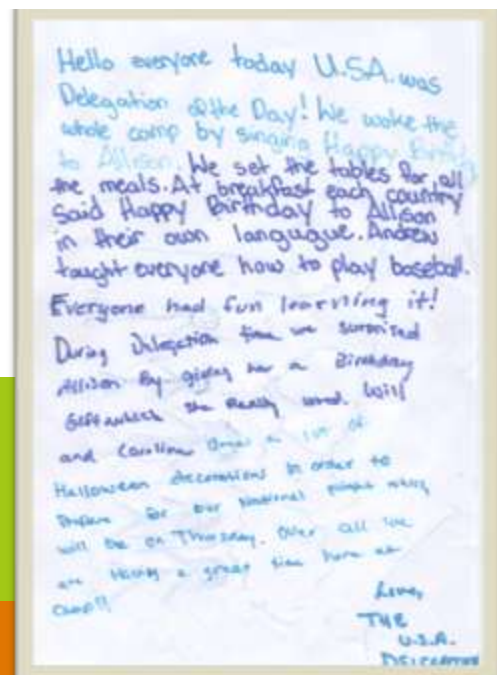 Hello everyone today U.S.A. was
Delegation of the Day! We woke the
whole camp by singing Happy Birthday
to Allison. We set the tables for all
the meals. At breakfast each country
said Happy Birthday to Allison
in their own langugue. Andrew
taught everyone how to play baseball.
Everyone had fun learning it!
During Delegation time we surprised
Allison By giving her a Birthday
Gift which she Really loved. Will
and Caroline a lot of
Halloween decorations in order to
Prepare for our National night which
will be on Thursday. Over all we
are Having a great time here at
Camp!!
Love,
THE
U.S.A.
DELEGATION